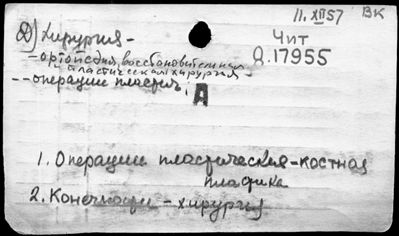 11. XII 57 ВК
Хирургия -
Чит
- ортопедия, восстановительная
Д.17955
и пластическая хирургия -
-- операции пластич.
А
1. Операции пластические - костная
пластика
2. Конечности - хирургия